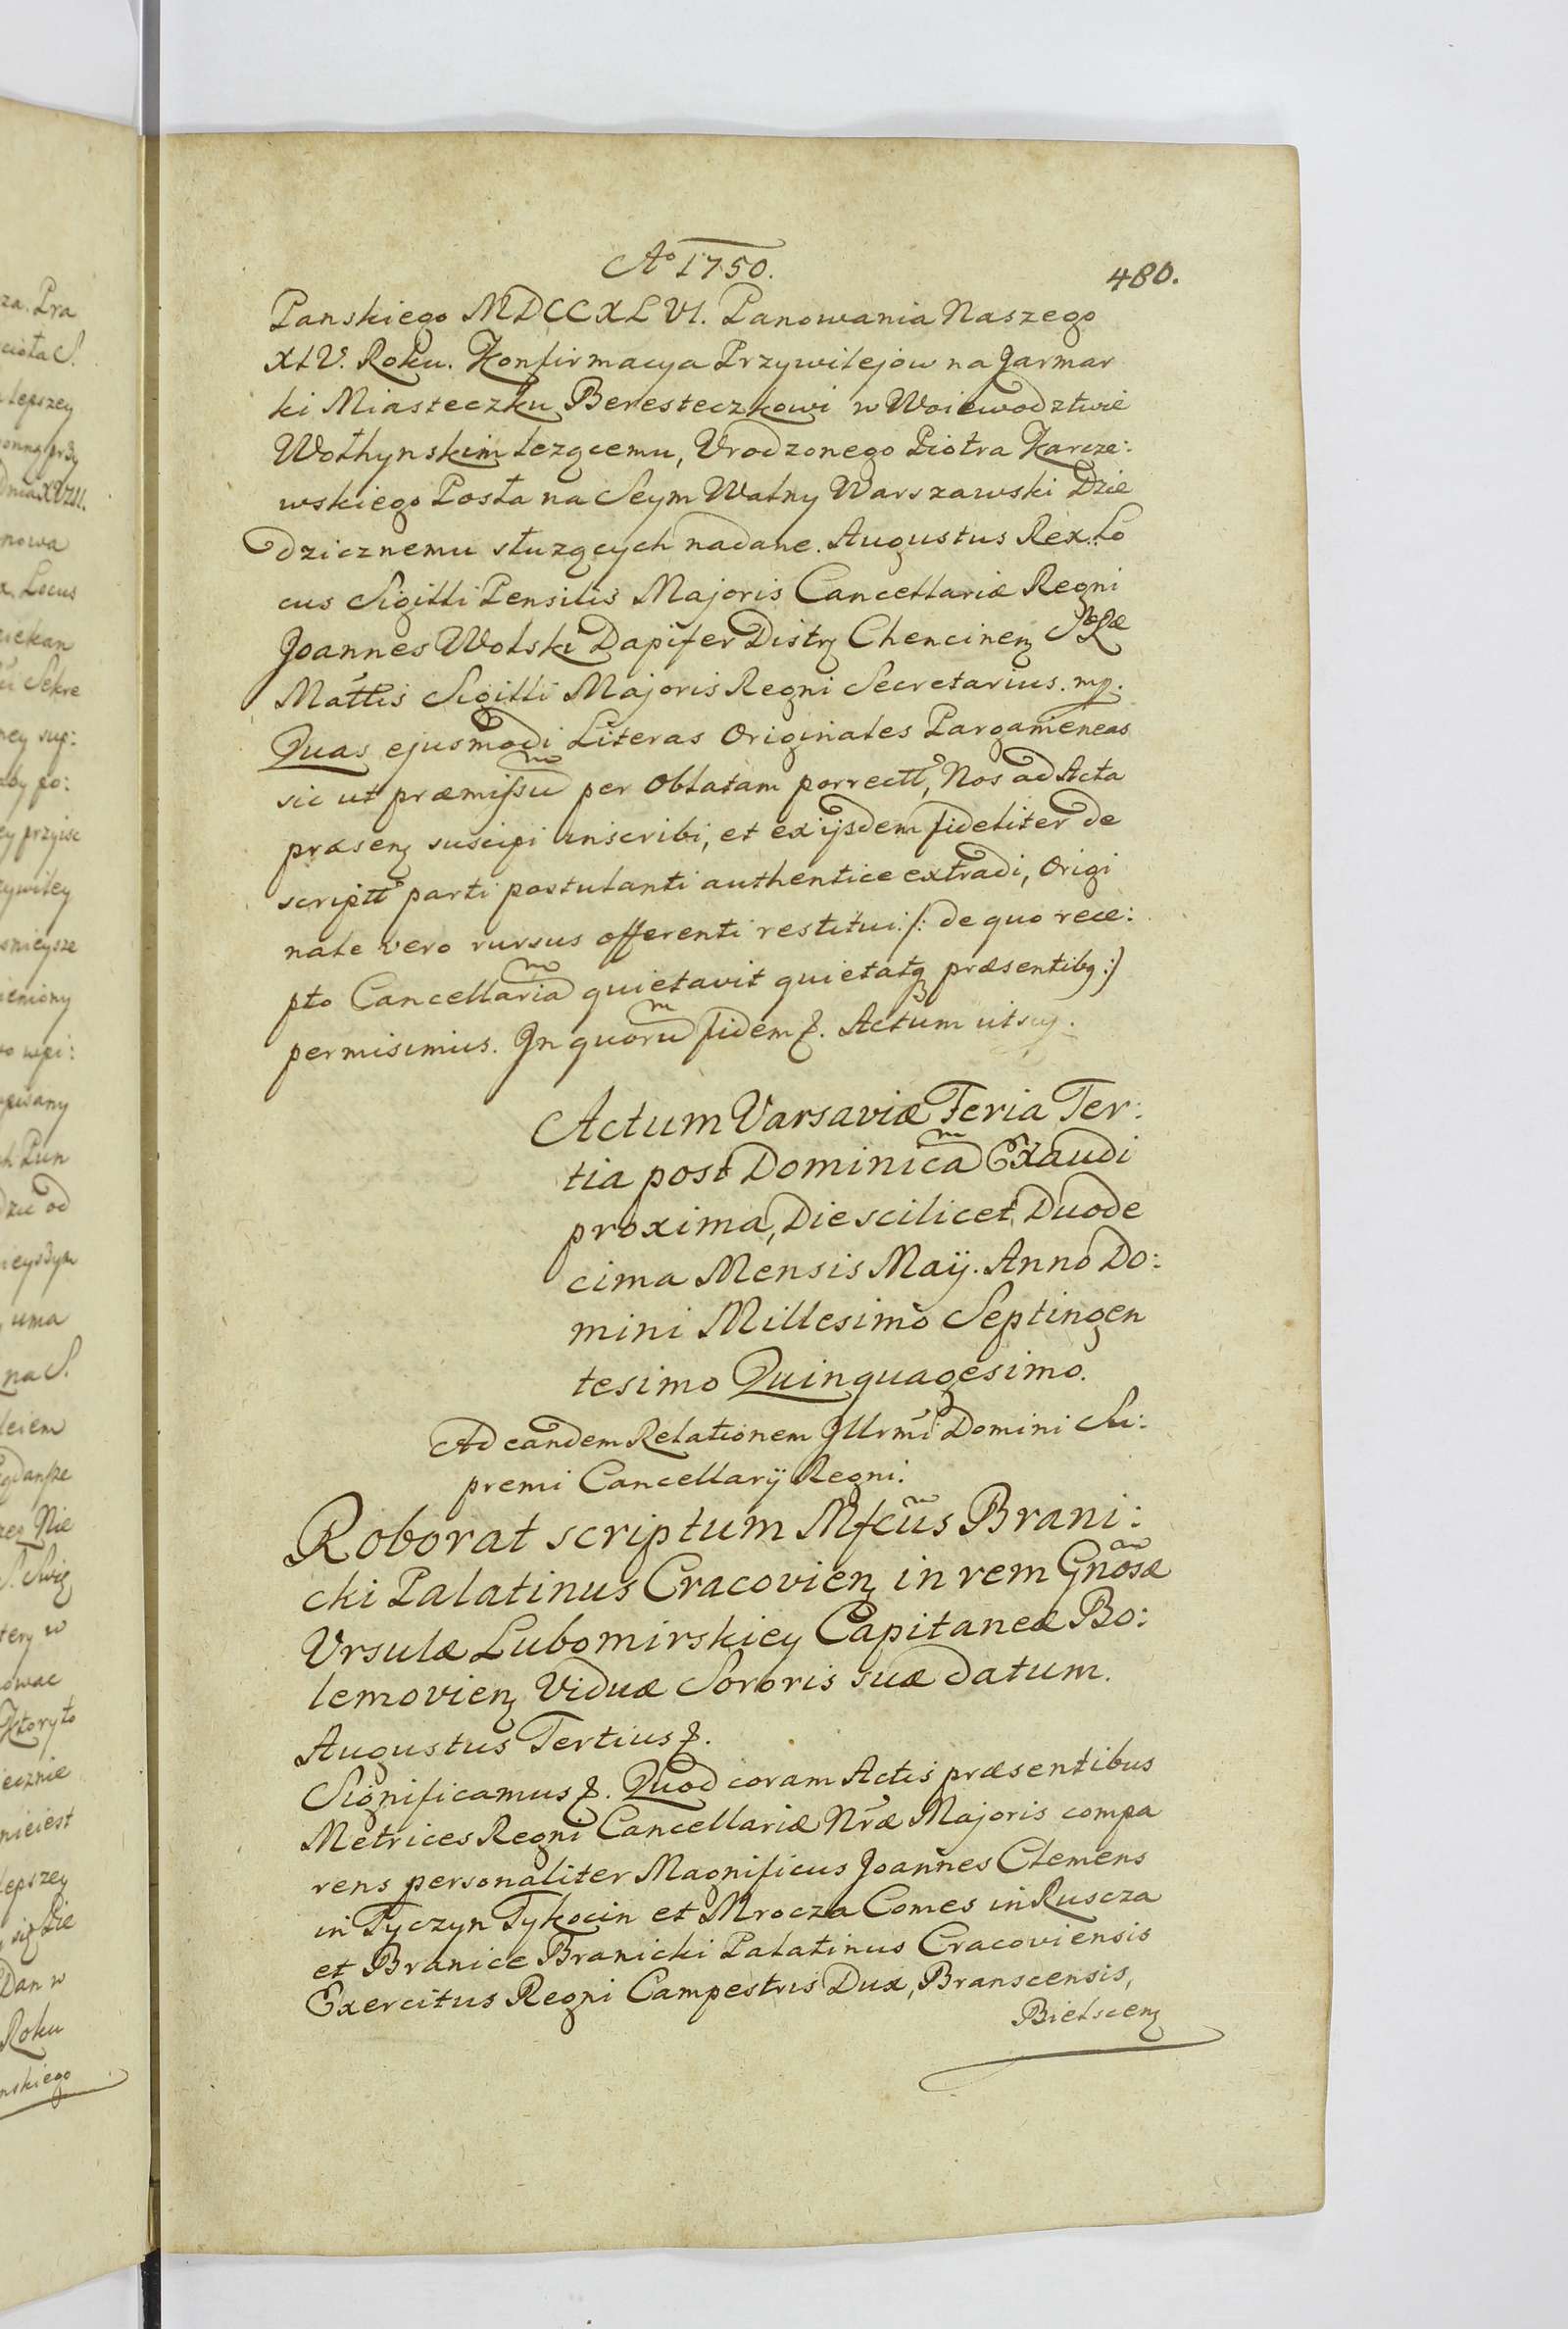 Aº 1750.
480.
Panskiego MDCCXLVI. Panowania Naszego
XIV. Roku. Konfirmacya Przywilejow na Jarmar
ki Miasteczku Beresteczkowi w Woiewodztwie
Wołhynskim lezącemu, Vrodzonego Piotra Karcze:
wskiego Posła na Seym Walny Warszawski Dzie
dzicznemu słuzących nadane. Augustus Rex. Lo
cus Sigilli Pensilis Majoris Cancellariæ Regni
Joannes Wolski Dapifer Distrꝫ Chencinenꝫ SRæ
Mattis Sigilli Majoris Regni Secretarius. mp.
Quas ejusmodi Literas Originales Pargameneas
sic ut præmissũ per Oblatam porrectt, Nos ad Acta
præsenꝫ suscipi inscribi, et ex ijsdem fideliter de
scriptt parti postulanti authentice extradi, Origi
nale vero rursus offerenti restitui: /: de quo rece:
pto Cancellariã quietavit quietatqꝫ præsentibꝫ :/
permisimus. In quorũ fidem ꝛ. Actum ut sup.
Actum Varsaviæ Feria Ter:
tia post Dominicã Exaudi
proxima, Die scilicet Duode
cima Mensis Maÿ. Anno Do:
mini Millesimo Septingen
tesimo Quinquagesimo.
Ad eandem Relationem Jllrmi Domini Su:
premi Cancellarÿ Regni.
Roborat scriptum Mfcus Brani:
cki Palatinus Cracovienꝫ in rem Gnosæ
Vrsulæ Lubomirskiey Capitaneæ Bo:
lemovienꝫ Viduæ Sororis suæ datum.
Augustus Tertius ꝛ.
Significamus ꝛ. Quod coram Actis præsentibus
Metrices Regni Cancellariæ Nræ Majoris compa
rens personaliter Magnificus Joannes Clemens
in Tyczyn Tykocin et Mrocza Comes in Ruscza
et Branice Branicki Palatinus Cracoviensis
Exercitus Regni Campestris Dux, Branscensis,
Bielscenꝫ